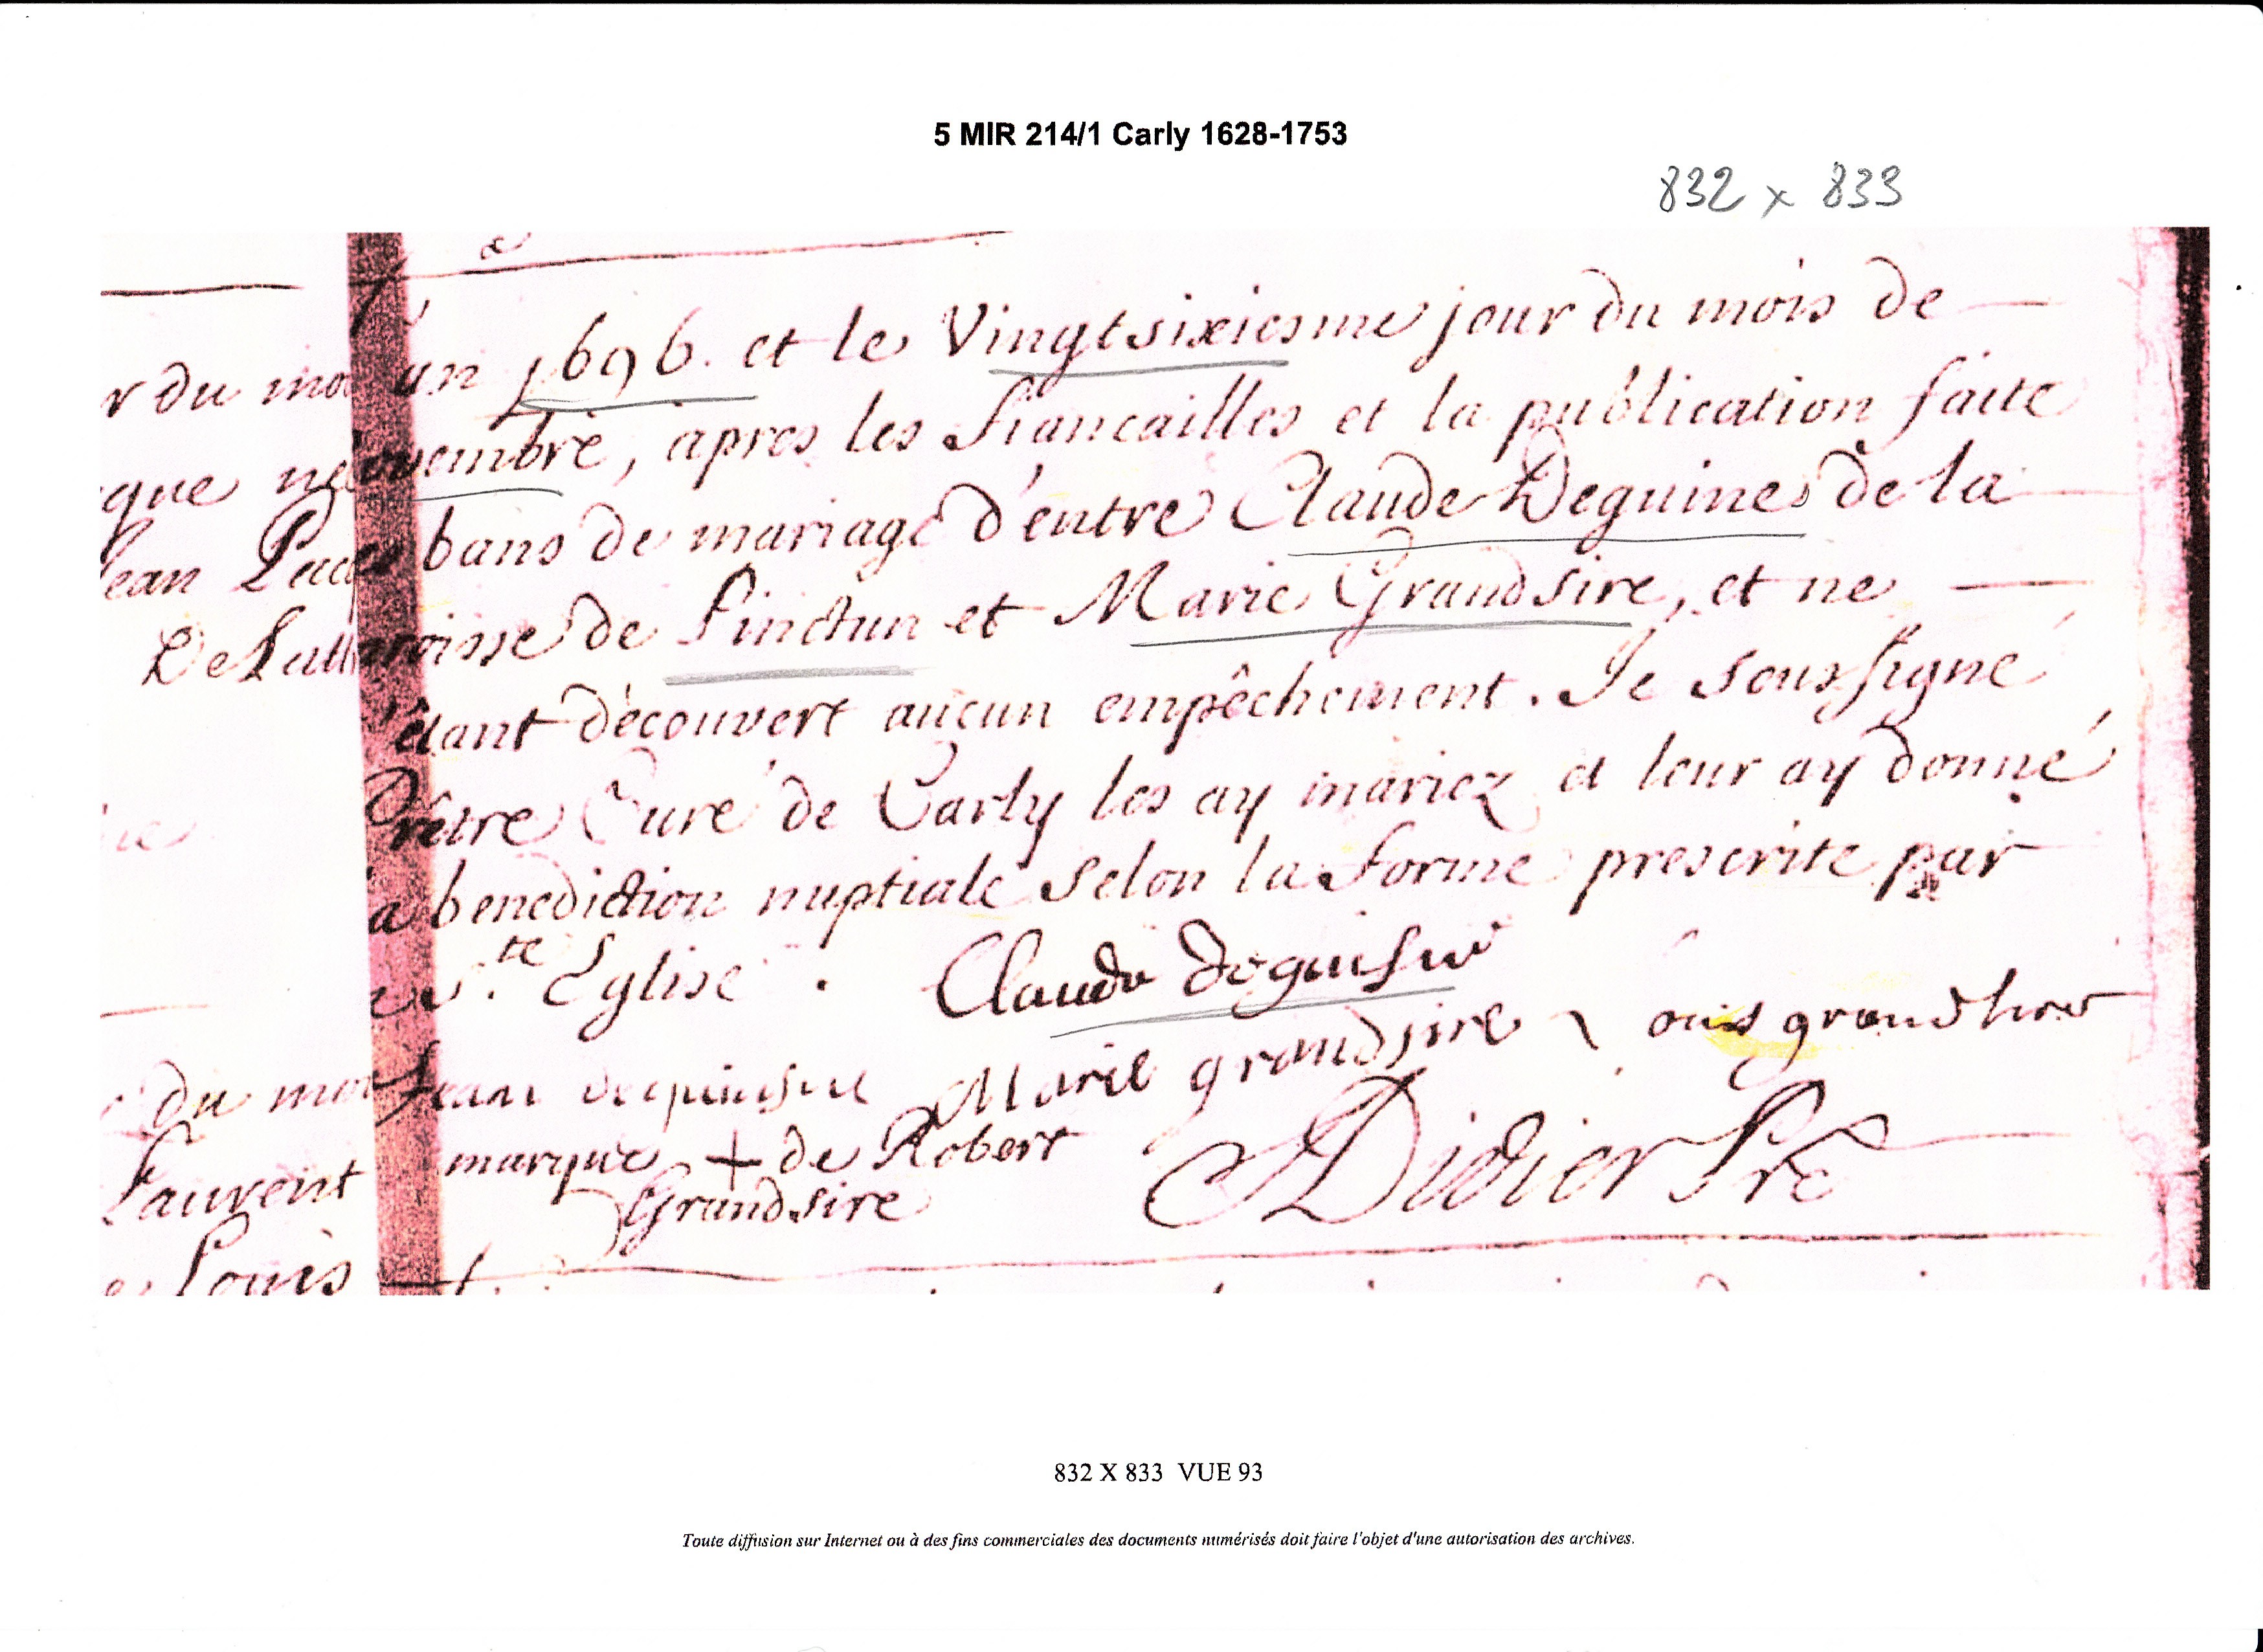 5 MIR 214/1 Carly 1628-1753
832 x 833
un 1696. et le Vingtsixiesme jour du mois de
vembre, apres les fiancailles et la publication faite
bans de mariage d'entre Claude Deguines de la
roisse de Tinctun et Marie Grandsire, et ne
étant découvert aucun empêchement. Je soussigné
Prêtre Curé de Carly les ay mariez et leur ay donné
la benediction nuptiale selon la forme prescrite par
S.te Eglise.
Claude
Jean
Marie grandsire
marque + de Robert
Grandsire
Didier Pre
r du mo
que
Jean
Laurent
Louis
du mo
832 X 833 VUE 93
Toute diffusion sur Internet ou à des fins commerciales des documents numérisés doit faire l'objet d'une autorisation des archives.